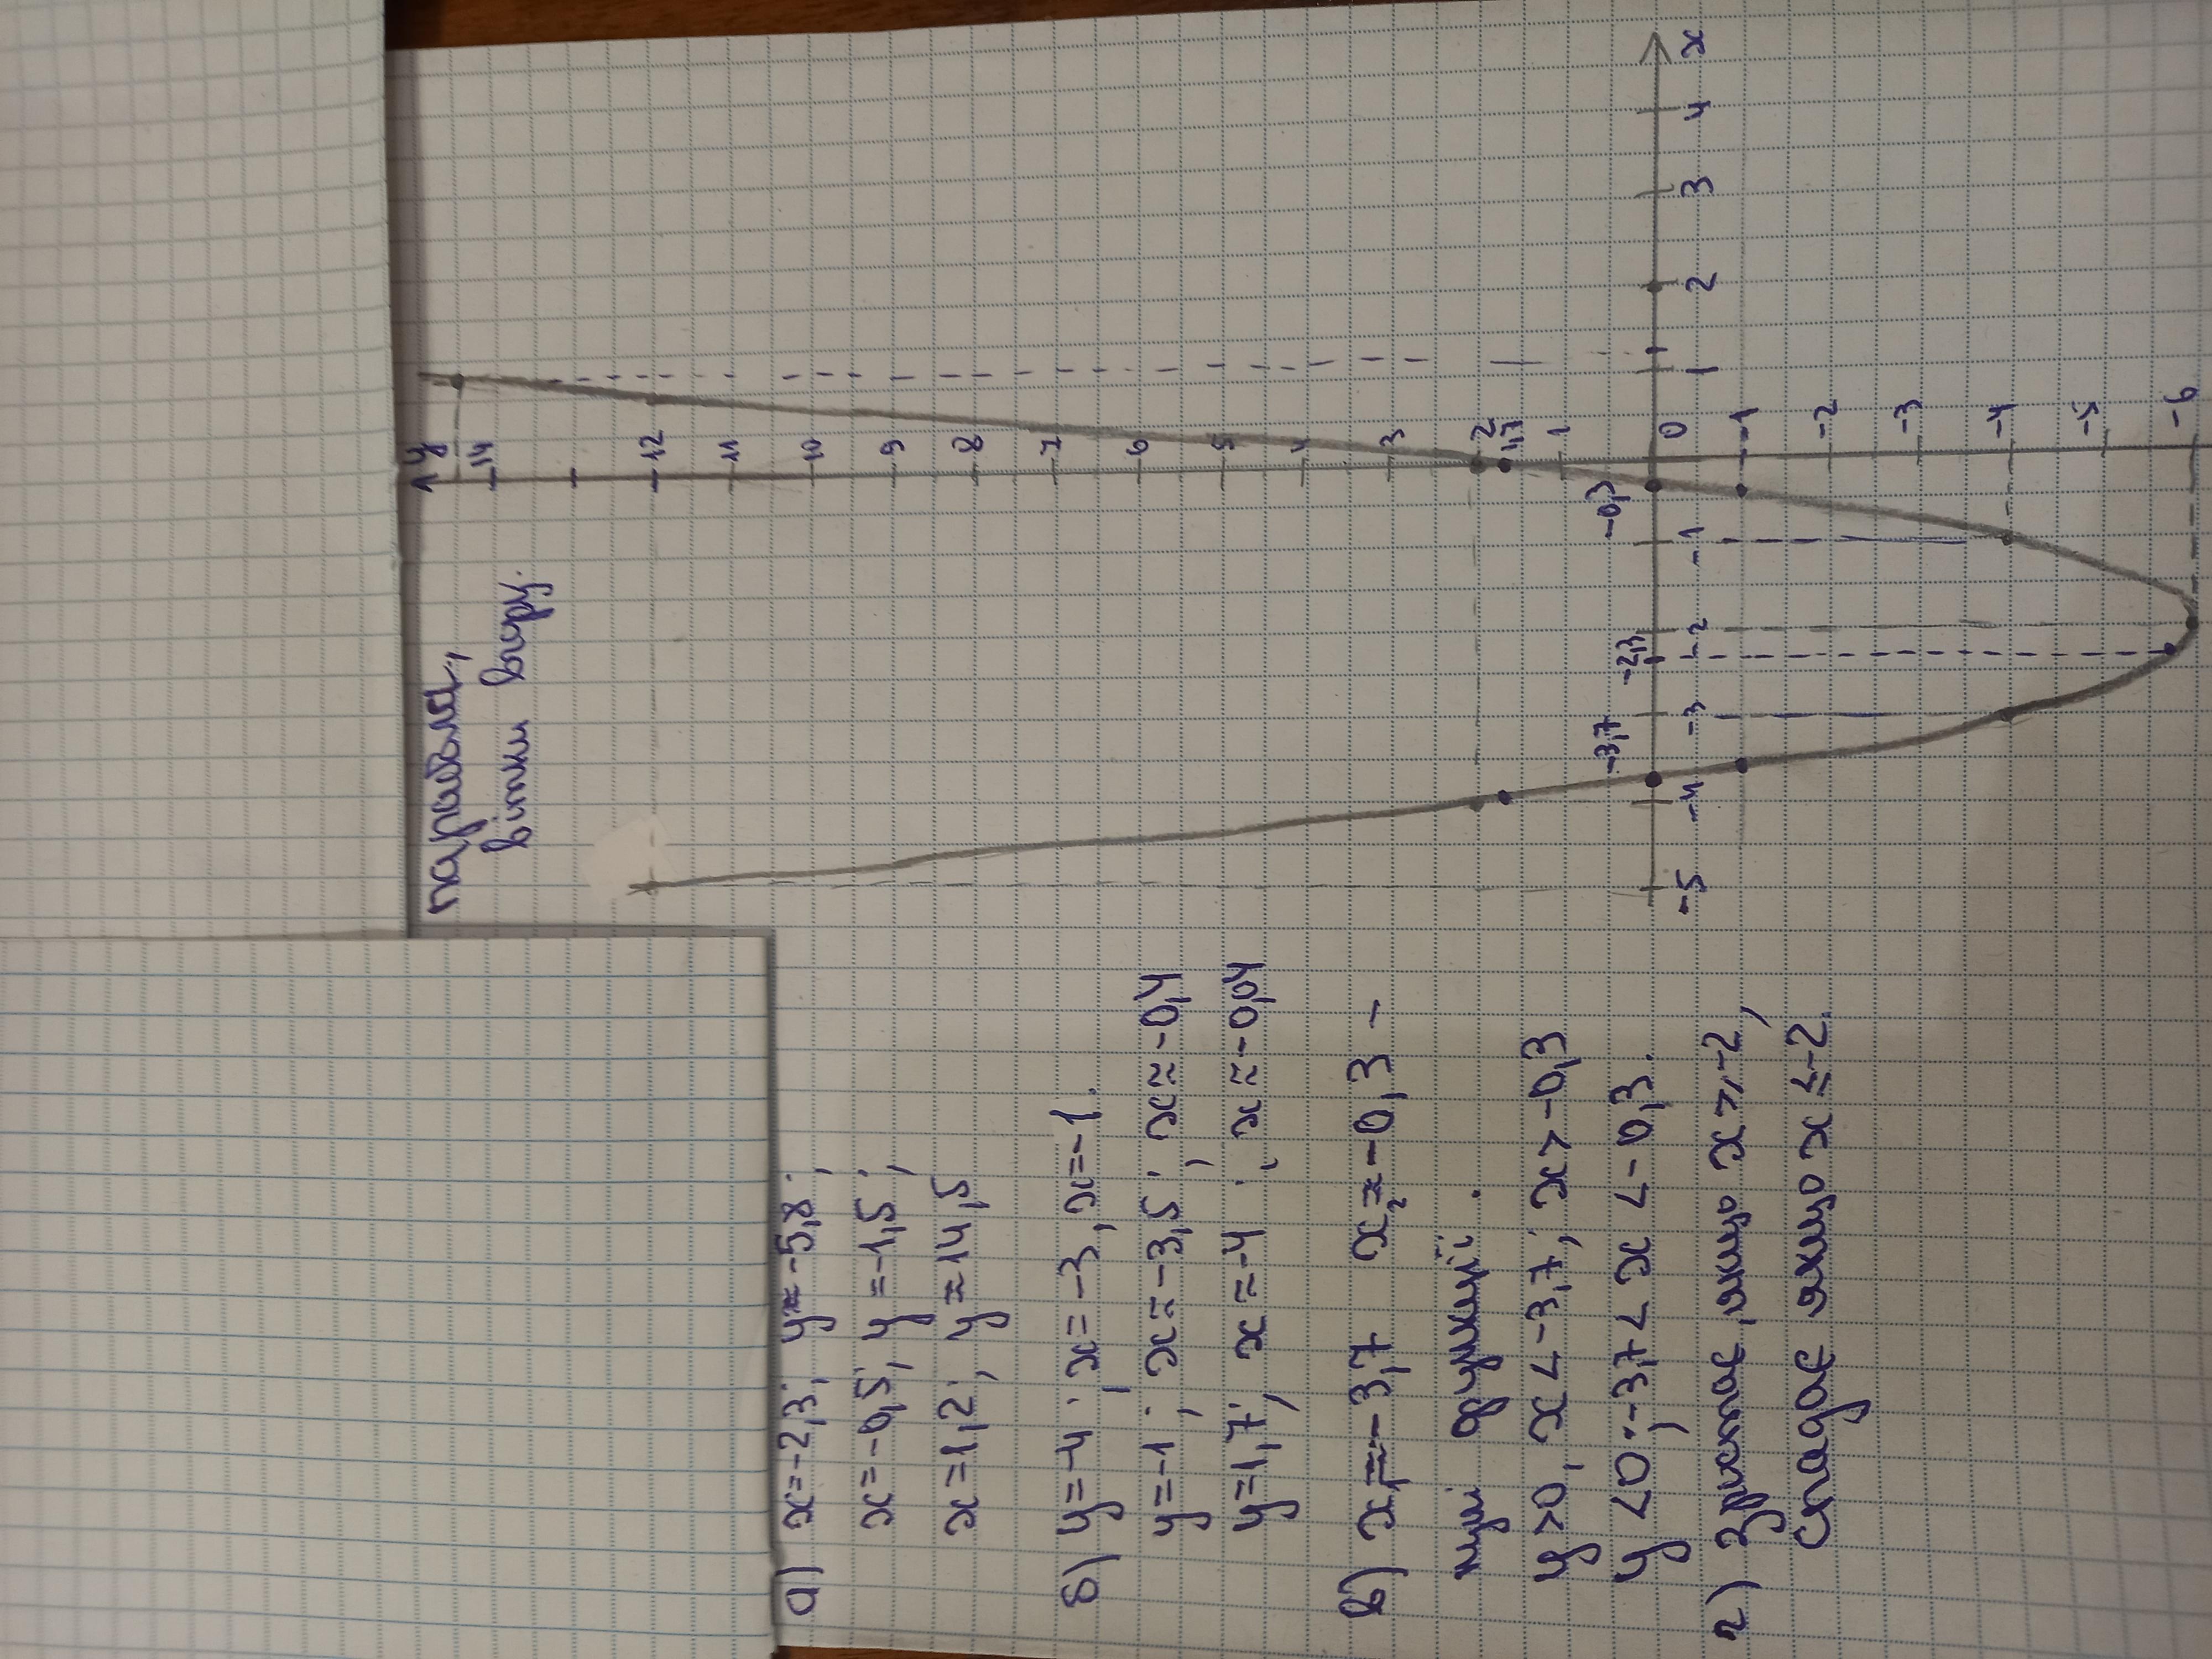 парабола,
вітки вгору.
y
14
12
11
10
9
8
7
6
5
4
3
2
1,7
1
-5 -4 -3 -2 -1 0 1 2 3 4 x
-3,7 -2,3 -0,3
-1
-2
-3
-4
-5
-6
а) x=-2,3; y≈-5,8;
x=-0,5; y=-1,5;
x=1,2; y≈14,5
б) y=-4; x=-3, x=-1.
y=-1; x≈-3,5; x≈-0,4
y=1,7; x≈-4; x≈-0,04
в) x₁=-3,7 x₂≈-0,3 –
нулі функції.
y>0, x<-3,7; x>-0,3
y<0; -3,7<x<-0,3.
г) зростає, якщо x≥-2,
спадає якщо x≤-2.